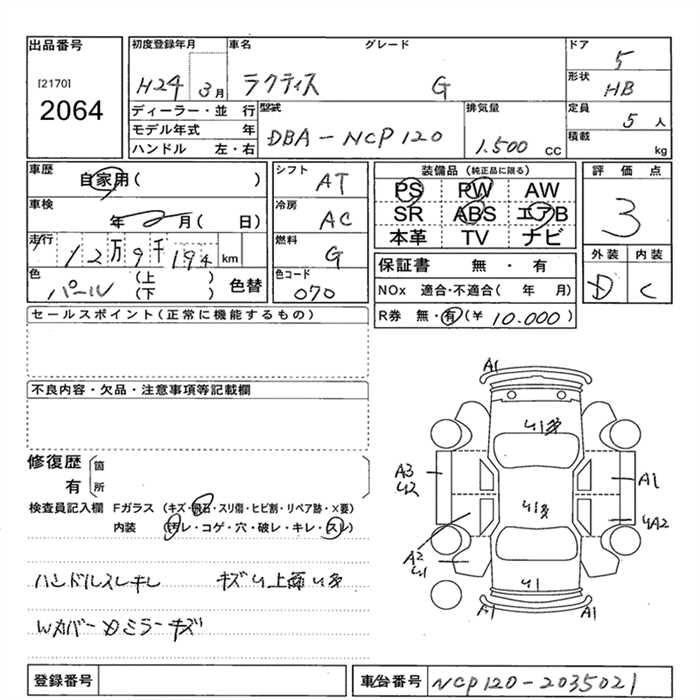 出品番号 初度登録年月 車名 グレード ドア 5
[2170] H24 3月 ラクティス G 形状 HB
2064 ディーラー・並 行 型式 排気量 定員 5 人
モデル年式 年 DBA-NCP120 1.500 cc 積載 kg
ハンドル 左・右
車歴 自家用( ) シフト AT 装備品(純正品に限る) 評価点
車検 年 2 月( 日) 冷房 AC PS PW AW 3
走行 12万9千194 km 燃料 G SR ABS エアB
色 パール (上 下) 色替 色コード 070 本革 TV ナビ 外装 内装
保証書 無・有 D C
NOx 適合・不適合( 年 月)
R券 無・有(¥ 10.000)
セールスポイント(正常に機能するもの)
不良内容・欠品・注意事項等記載欄
修復歴 箇
有 所
検査員記入欄 Fガラス (キズ・飛石・スリ傷・ヒビ割・リペア跡・X要)
内装 (汚レ・コゲ・穴・破レ・キレ・スレ)
ハンドルスレキレ
WカバーDミラーキズ
A1
A3
A1
A2
A2
A1 A1
登録番号 車台番号 NCP120-2035021